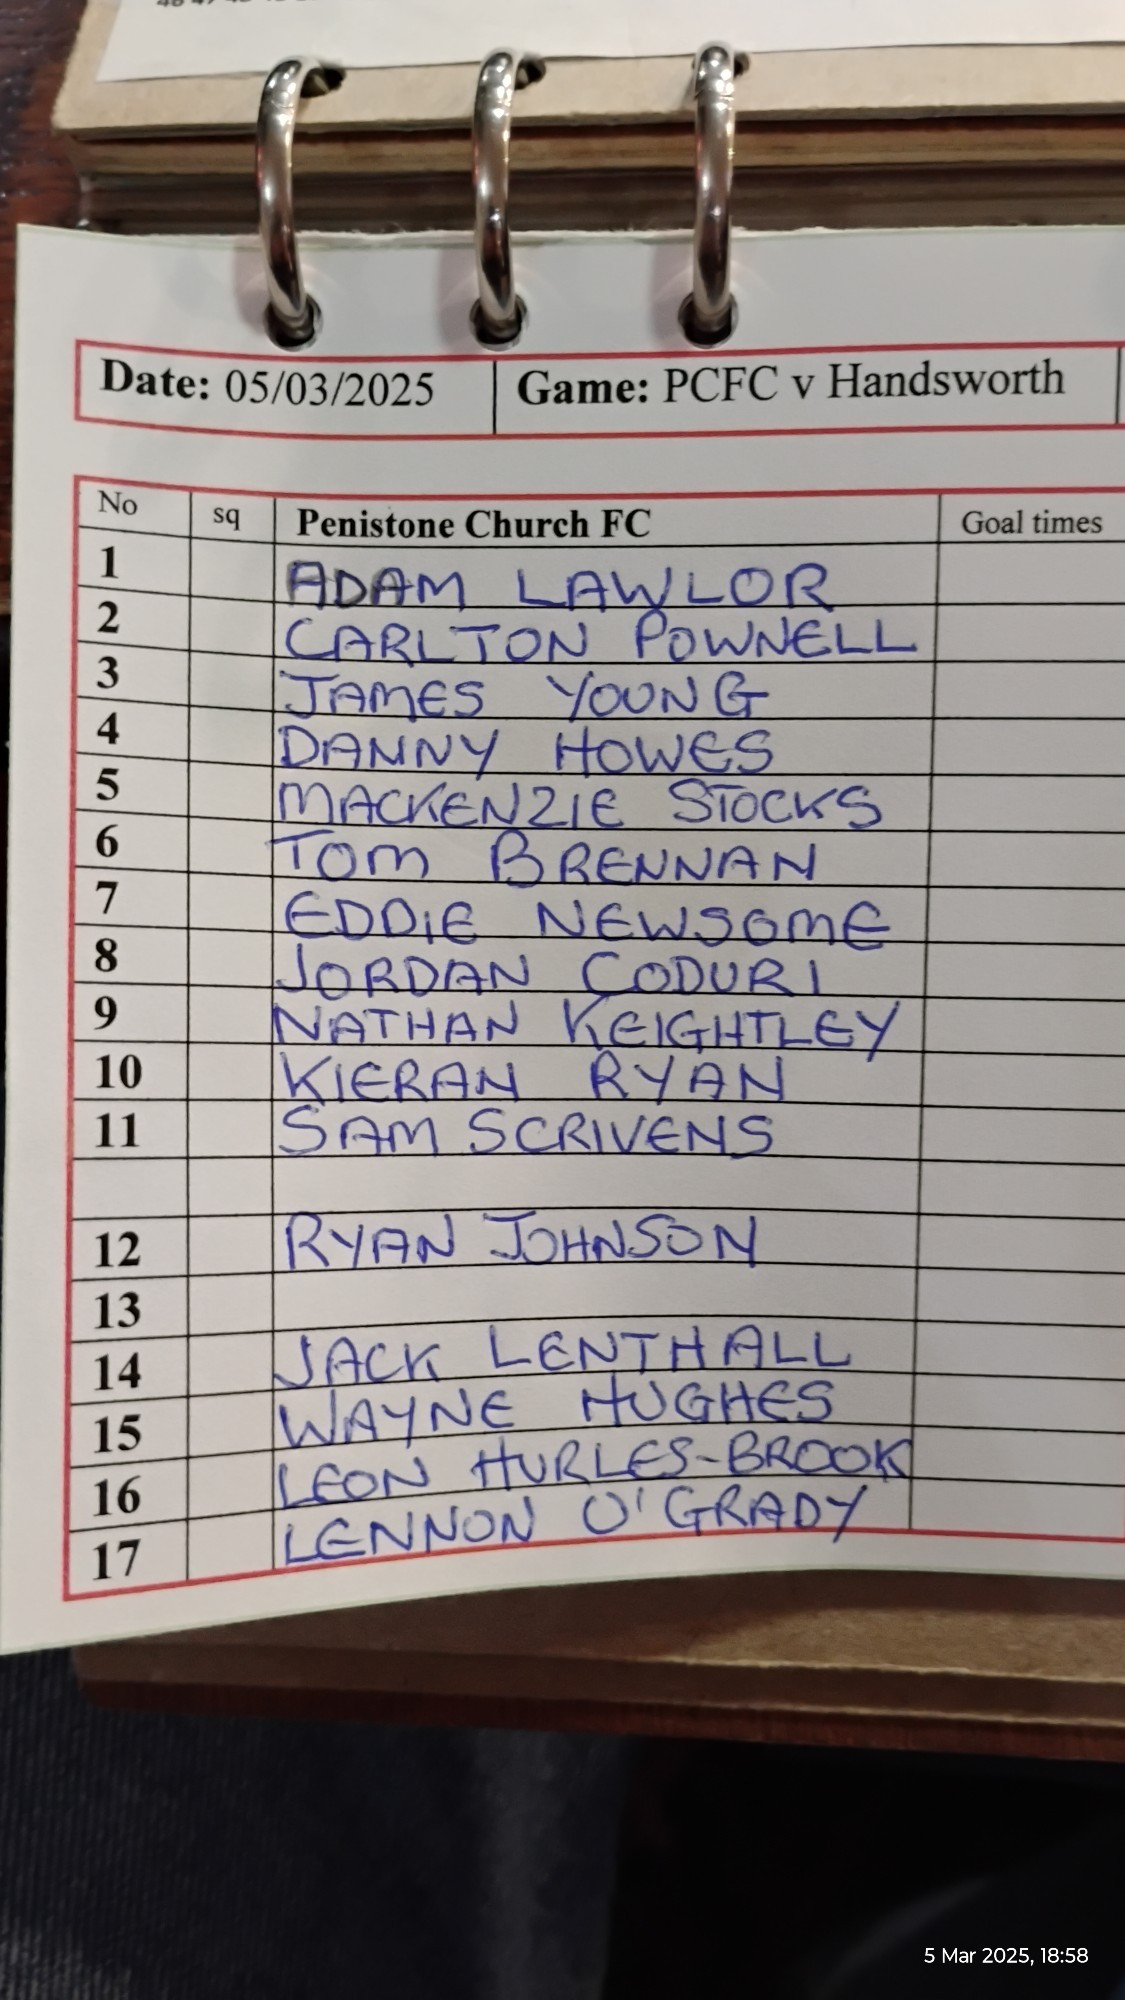 Date: 05/03/2025 Game: PCFC v Handsworth
No sq Penistone Church FC Goal times
1 ADAM LAWLOR
2 CARLTON POWNELL
3 JAMES YOUNG
4 DANNY HOWES
5 MACKENZIE STOCKS
6 TOM BRENNAN
7 EDDIE NEWSOME
8 JORDAN CODURI
9 NATHAN KEIGHTLEY
10 KIERAN RYAN
11 SAM SCRIVENS
12 RYAN JOHNSON
13
14 JACK LENTHALL
15 WAYNE HUGHES
16 LEON HURLES-BROOK
17 LENNON O'GRADY
5 Mar 2025, 18:58